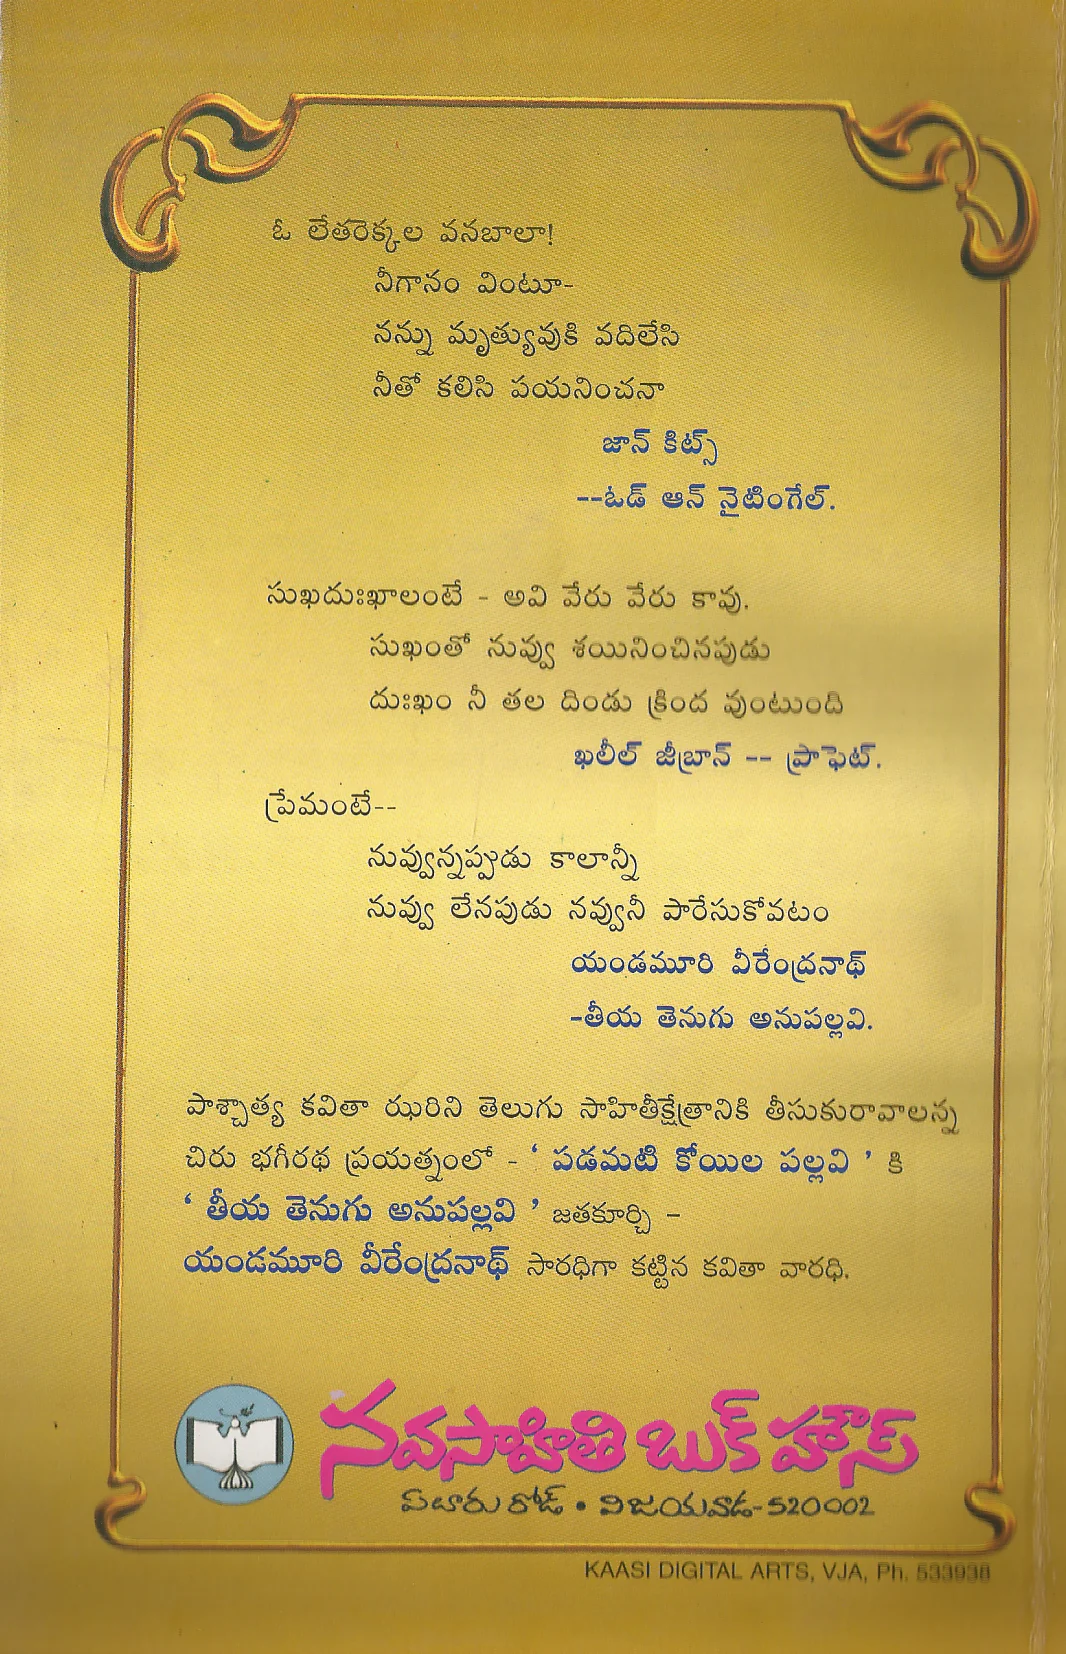 ఓ లేతరెక్కల వనబాలా!
నీగానం వింటూ-
నన్ను మృత్యువుకి వదిలేసి
నీతో కలిసి పయనించనా
జాన్ కిట్స్
--ఓడ్ ఆన్ నైటింగేల్.
సుఖదుఃఖాలంటే - అవి వేరు వేరు కావు.
సుఖంతో నువ్వు శయినించినపుడు
దుఃఖం నీ తల దిండు క్రింద వుంటుంది
ఖలీల్ జీబ్రాన్ -- ప్రాఫెట్.
ప్రేమంటే--
నువ్వున్నప్పుడు కాలాన్నీ
నువ్వు లేనపుడు నవ్వునీ పారేసుకోవటం
యండమూరి వీరేంద్రనాథ్
-తీయ తెనుగు అనుపల్లవి.
పాశ్చాత్య కవితా ఝరిని తెలుగు సాహితీక్షేత్రానికి తీసుకురావాలన్న
చిరు భగీరథ ప్రయత్నంలో - ‘ పడమటి కోయిల పల్లవి ’ కి
‘ తీయ తెనుగు అనుపల్లవి ’ జతకూర్చి –
యండమూరి వీరేంద్రనాథ్ సారధిగా కట్టిన కవితా వారధి.
నవసాహితి బుక్ హౌస్
ఏలూరు రోడ్ • విజయవాడ-520002
KAASI DIGITAL ARTS, VJA, Ph. 533938